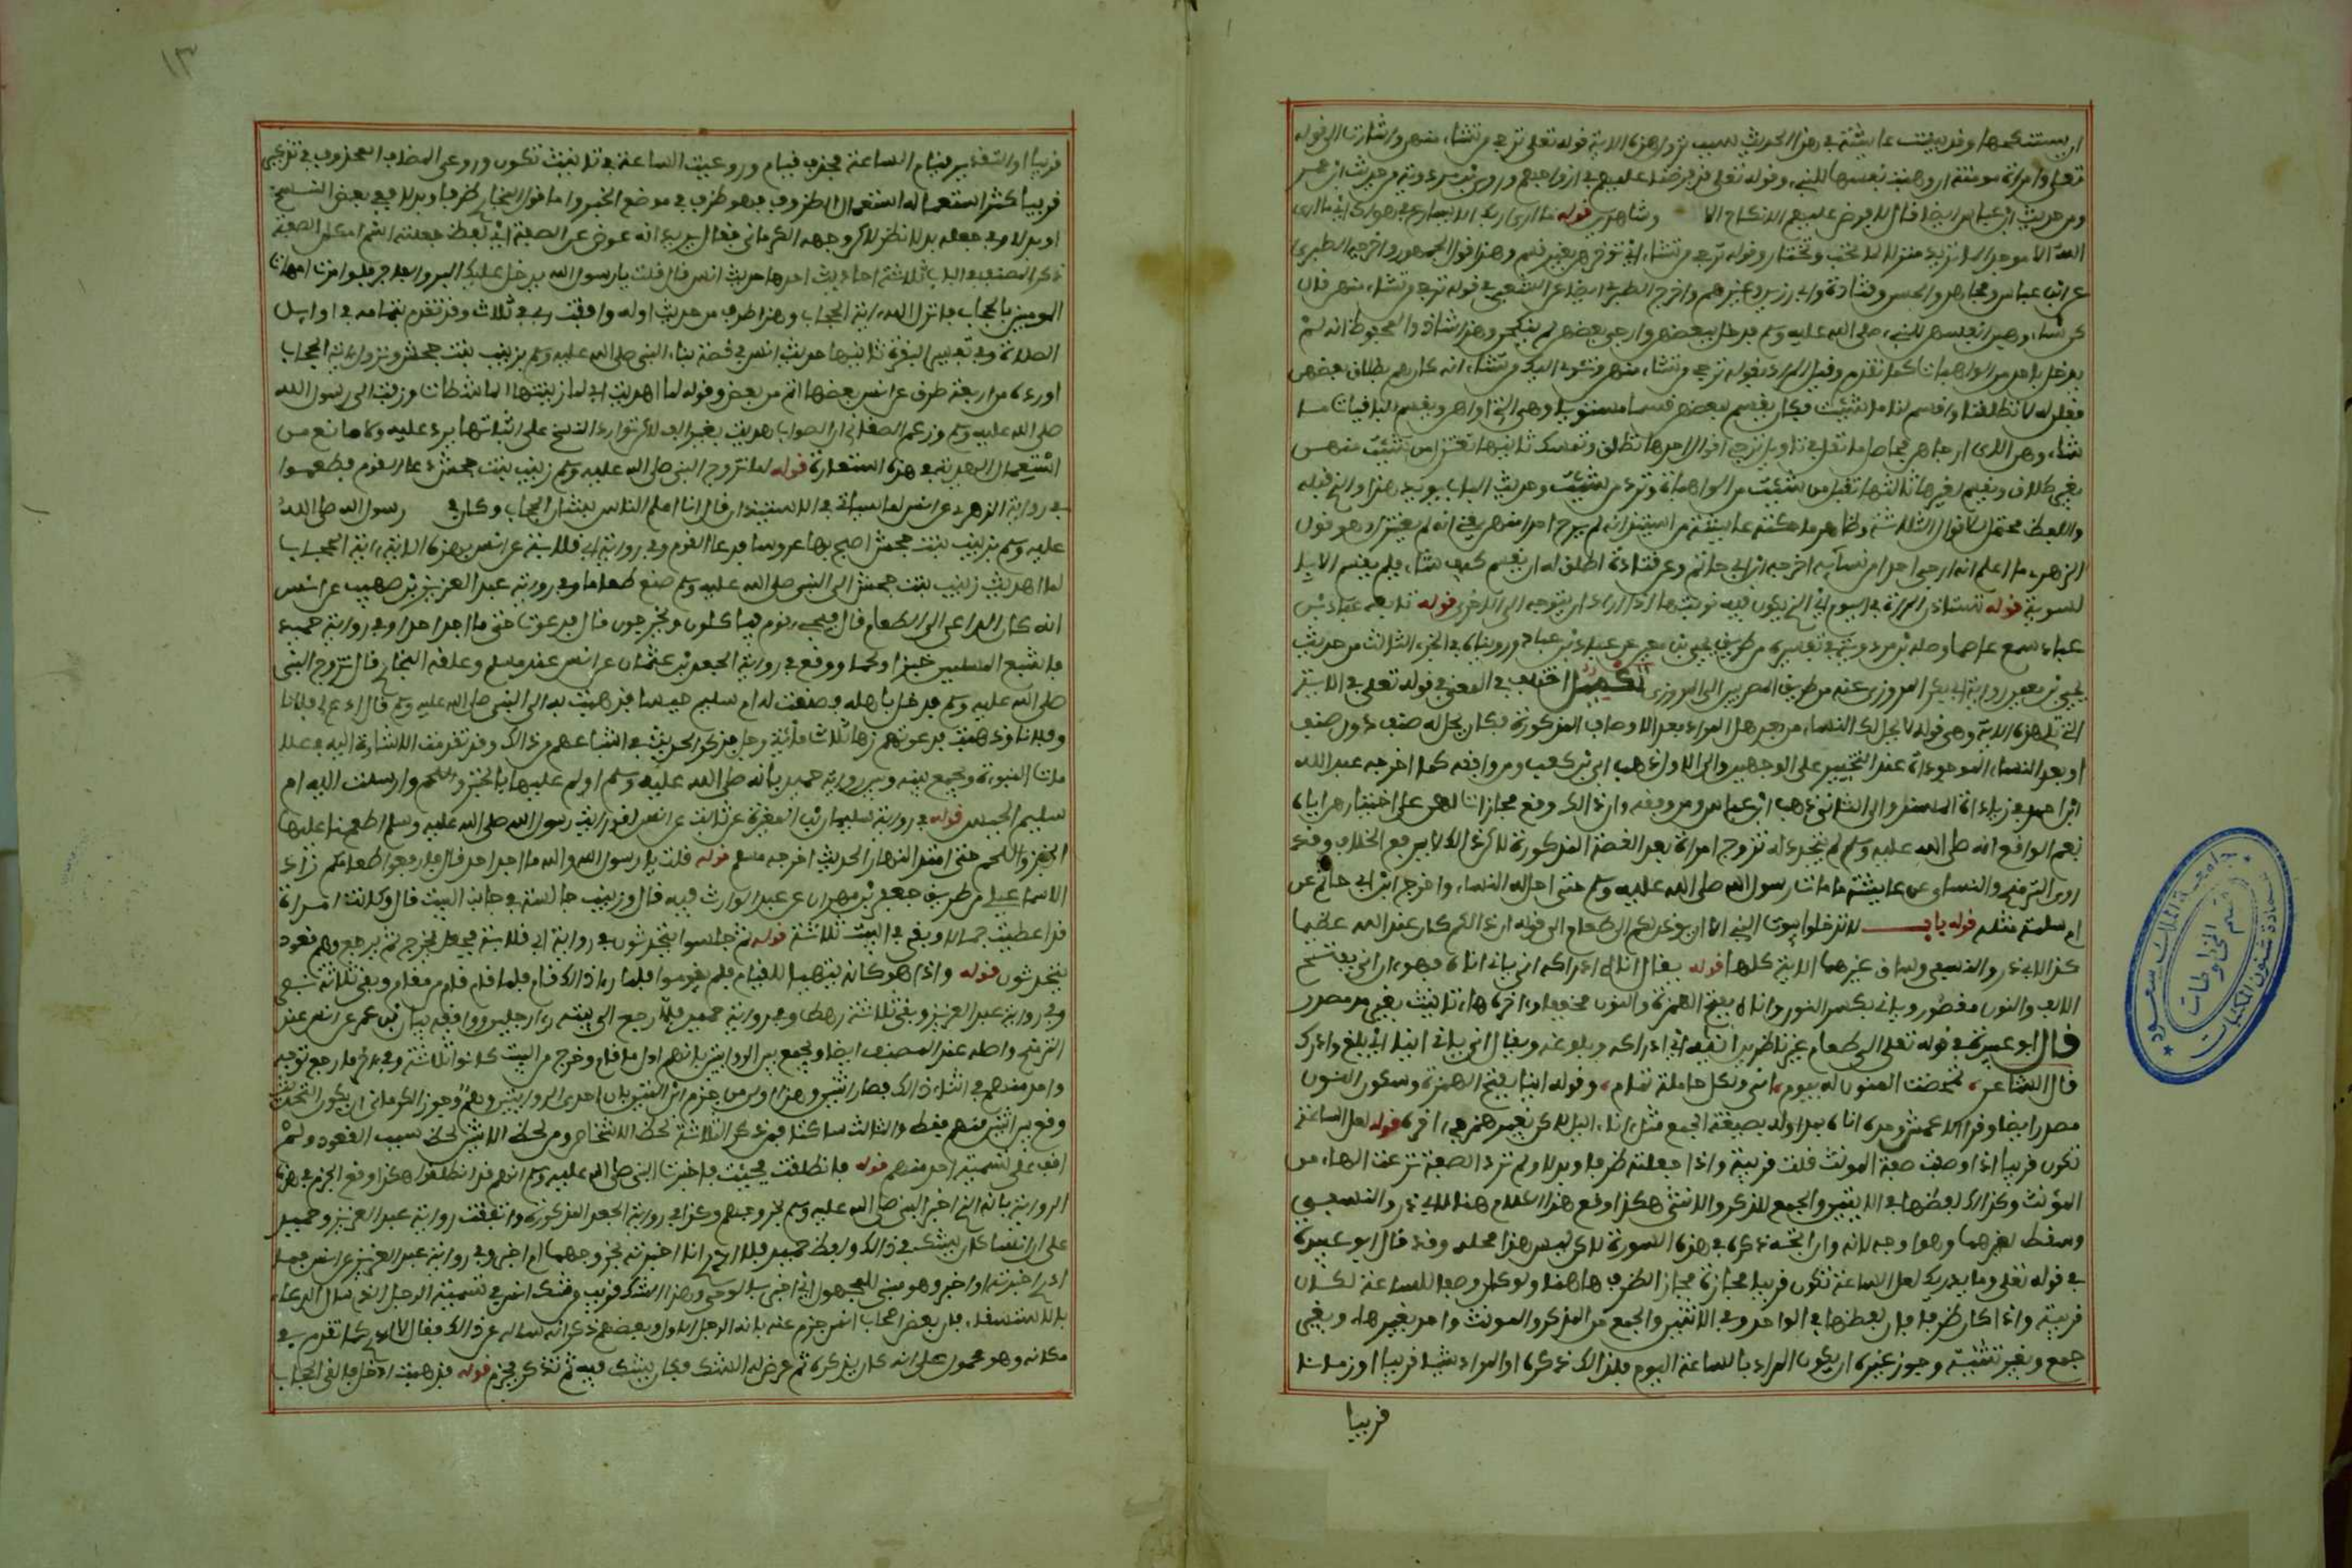 ان يستنكحها وقد بينت عايشة في هذا الحديث سبب نزول هذه الاية قوله تعلى ترجي من تشاء منهن واشارت الى قوله
تعلى وامراة مومنة ان وهبت نفسها للنبي وقوله تعلى قد علمنا ما فرضنا عليهم في ازواجهم وروى ابن مردوية من حديث ابن عمر
ومن حديث ابن عباس ايضا قال فرض عليهم لا نكاح الا وشاهدين قوله ما ارى ربك الا يسارع في هواك اي ما ارى
الله الا موجدا لما تريد منزلا لما تحب وتختار وقوله ترجي من تشاء اي توخرهن بغير قسم وهذا قول الجمهور واخرجه الطبري
عن ابن عباس ومجاهد والحسن وقتادة وابي رزين وغيرهم واخرج الطبري ايضا عن الشعبي في قوله ترجي من تشاء منهن قال
كن نساء وهبن انفسهن للنبي صلى الله عليه وسلم فدخل ببعضهن وارجى بعضهن لم ينكحهن وهذا شاذ والمحفوظ انه لم
يدخل باحد من الواهبات كما تقدم وقيل المراد بقوله ترجي من تشاء منهن وتئوي اليك من تشاء انه كان هم بطلاق بعضهن
فقلن له لا تطلقنا واقسم لنا ما شئت فكان يقسم لبعضهن قسما مستويا وهن اللاتي اواهن ويقسم للباقيات ما
شاء وهن اللاتي ارجاهن فحاصل ما نقل في تاويل ترجي اقوال احدها تطلق وتمسك ثانيها تعتزل من شئت منهن
بغير طلاق وتقسم لغيرها ثالثها تقبل من شئت من الواهبات وترد من شئت وحديث الباب يويد هذا والذي قبله
واللفظ محتمل للاقوال الثلاثة وظاهر ما حكته عايشة من استئذانه انه لم يرج احدا منهن بمعنى انه لم يعتزل وهو قول
الزهري ما اعلم انه ارجى احدا من نسايه اخرجه ابن ابي حاتم وعن قتادة اطلق له ان يقسم كيف شاء فلم يقسم الا
بالسوية قوله يستاذن المراة في اليوم اي الذي يكون فيه نوبتها اذا اراد ان يتوجه الى الاخرى قوله تابعه عباد بن
عباد سمع عاصما وصله ابن مردويه في تفسيره من طريق يحيى بن معين عن عباد بن عباد ورويناه في الجزء الثالث من حديث
يحيى بن معين رواية ابي بكر المروزي عنه من طريق المصريين الى المروزي تكميل اختلف في المعنى في قوله تعلى في الاية
التي تلي هذه الاية وهي قوله لا يحل لك النساء من بعد هل المراد بعد الاوصاف المذكورة فكان يحل له صنف دون صنف
او بعد النساء الموجودات عند التخيير على الوجهين والى الاول ذهب ابي بن كعب ومن وافقه كما اخرجه عبد الله
ابن احمد في زيادات المسند والى الثاني ذهب ابن عباس ومن وافقه وان ذلك وقع مجازات لهن على اختيارهن اياه
نعم الواقع انه صلى الله عليه وسلم لم يتجدد له تزوج امراة بعد القصة المذكورة لكن ذلك لا يرفع الخلاف وقد
روى الترمذي والنساءي عن عايشة ما مات رسول الله صلى الله عليه وسلم حتى احل له النساء واخرج ابن ابي حاتم عن
ام سلمة مثله قوله باب لا تدخلوا بيوت النبي الا ان يوذن لكم الى طعام الى قوله ان ذالكم كان عند الله عظيما
كذا لابي ذر والنسفي وساق غيرهما الاية كلها قوله يقال اناه ادراكه انى ياني اناة فهو ءان انى بفتح
الالف والنون مقصور وياني بكسر النون واناة بفتح الهمزة والنون مخففا واخره هاء تانيث بغير مد مصدر
قال ابو عبيدة في قوله تعلى الى طعام غير ناظرين اناه اي ادراكه وبلوغه ويقال انى ياني انيا اي بلغ وادرك
قال الشاعر تمخضت المنون له بيوم انى ولكل حاملة تمام وقوله انيا بفتح الهمزة وسكون النون
مصدر ايضا وقرا الاعمش وحده اناه بمد اوله بصيغة الجمع مثل اناء الليل لكن بغير همز في اخره قوله لعل الساعة
تكون قريبا اذا وصفت صفة المونث قلت قريبة واذا جعلته ظرفا وبدلا ولم ترد الصفة نزعت الهاء من
المؤنث وكذلك لفظها في الاثنين والجمع للذكر والانثى هكذا وقع هذا الكلام هنا لابي ذر والنسفي
وسقط لغيرهما وهو اوجه لانه وان اتجه ذكره في هذه السورة لكن ليس هذا محله وقد قال ابو عبيدة
في قوله تعلى وما يدريك لعل الساعة تكون قريبا مجازه مجاز الظرف هاهنا ولو كان وصفا للساعة لكان
قريبة واذا كان ظرفا فان لفظها في الواحد وفي الاثنين والجمع من المذكر والمونث واحد بغير هاء وبغير
جمع وبغير تثنية وجوز غيره ان يكون المراد بالساعة اليوم فلذلك ذكره او المراد شيئا قريبا او زمانا
قريبا
١٣
قريبا او التقدير قيام الساعة فحذف قيام وروعيت الساعة في تانيث تكون وروعي المضاف المحذوف في تذكير
قريبا وقيل قريبا كثر استعماله استعمال الظروف فهو ظرف في موضع الخبر واما قول البخاري ظرفا وبدلا وفي بعض النسخ
او بدلا وفي جعله بدلا نظر لكن وجهه الكرماني فقال يريد انه عوض عن الصفة
ذكر المصنف في الباب ثلاثة احاديث احدها حديث انس قال قلت يا رسول الله يدخل عليك البر والفاجر فلو امرت امهات
المومنين بالحجاب فانزل الله ءاية الحجاب وهذا طرف من حديث اوله وافقت ربي في ثلاث وقد تقدم بتمامه في اوايل
الصلاة وفي تفسير البقرة ثانيها حديث انس في قصة بناء النبي صلى الله عليه وسلم بزينب بنت جحش ونزول ءاية الحجاب
اورده من اربعة طرق عن انس بعضها اتم من بعض وقوله لما اهديت اي لما زينتها الماشطات وزفت الى رسول الله
صلى الله عليه وسلم وزعم الصغاني ان الصواب هديت بغير الف لكن توارد النسخ على اثباتها يرد عليه ولا مانع من
استعمال الهدية في هذا استعارة قوله لما تزوج النبي صلى الله عليه وسلم زينب بنت جحش دعا القوم فطعموا
في رواية الزهري عن انس كما سياتي في الاستيذان قال انا اعلم الناس بشان الحجاب وكان في رسول الله صلى الله
عليه وسلم بزينب بنت جحش اصبح بها عروسا فدعا القوم وفي رواية ابي قلابة عن انس في هذه الاية ءاية الحجاب
لما اهديت زينب بنت جحش الى النبي صلى الله عليه وسلم صنع طعاما وفي رواية عبد العزيز بن صهيب عن انس
انه كان الداعي الى الطعام قال فيجيء قوم فياكلون ويخرجون قال فدعوت حتى ما اجد احدا وفي رواية حميد
فاشبع المسلمين خبزا ولحما ووقع في رواية الجعد بن عثمان عن انس عند مسلم وعلقه البخاري قال تزوج النبي
صلى الله عليه وسلم فدخل باهله فصنعت له ام سليم حيسا فذهبت به الى النبي صلى الله عليه وسلم فقال ادع لي فلانا
وفلانا وذهبت فدعوتهم زهاء ثلاث مائة رجل فذكر الحديث في اشباعهم من ذلك وقد تقدمت الاشارة اليه في علا
مات النبوءة ويجمع بينه وبين رواية حميد بانه صلى الله عليه وسلم اولم عليها بالخبز واللحم وارسلت اليه ام
سليم الحيس قوله في رواية سليمان بن المغيرة عن ثابت عن انس لقد رايت رسول الله صلى الله عليه وسلم اطعمنا عليها
الخبز واللحم حتى امتد النهار الحديث اخرجه مسلم قوله قلت يا رسول الله والله ما اجد احدا قال فارفعوا طعامكم زاد
الاسماعيلي من طريق جعفر بن مهران عن عبد الوارث فيه قال وزينب جالسة في جانب البيت قال وكانت امراة
قد اعطيت جمالا وبقي في البيت ثلاثة قوله ثم جلسوا يتحدثون في رواية ابي قلابة فجعل يخرج ثم يرجع وهم قعود
يتحدثون قوله واذا هو كانه يتهيا للقيام فلم يقوموا فلما را ذلك قام فلما قام قام من قام وبقي ثلاثة نفر
وفي رواية عبد العزيز وبقي ثلاثة رهط وفي رواية حميد فلما رجع الى بيته رءا رجلين ووافقه بيان بن عمر عن انس عند
الترمذي واصله عند المصنف ايضا ويجمع بين الروايتين بانهم اول ما قام وخرج من البيت كانوا ثلاثة وفي ءاخر ما رجع توجه
واحد منهم في اثناء ذلك فصاروا اثنين وهذا اولى من جزم ابن التين بان احدى الروايتين وهم وجوز الكرماني ان يكون التحديث
وقع بين اثنين منهم فقط والثالث ساكتا فمن ذكر الثلاثة لحظ الاشخاص ومن لحظ الاثنين لحظ سبب القعود ولم
اقف على تسمية احد منهم قوله فانطلقت فجيئت فاخبرت النبي صلى الله عليه وسلم انهم قد انطلقوا هكذا وقع الجزم في هذه
الرواية بانه الذي اخبر النبي صلى الله عليه وسلم بخروجهم وكذا في رواية الجعد المذكورة واتفقت رواية عبد العزيز وحميد
على ان انسا كان يشك في ذلك ولفظ حميد فلا ادري انا اخبرته بخروجهما ام اخبر وفي رواية عبد العزيز عن انس فما
ادري اخبرته او اخبر وهو مبني للمجهول اي اخبر بالوحي وهذا الشك قريب من شك انس في تسمية الرجل الذي سال الدعاء
بالاستسقاء فان بعض اصحاب انس جزم عنه بانه الرجل الاول وبعضهم ذكر انه ساله عن ذلك فقال لا ادري كما تقدم في
مكانه وهو محمول على انه كان يذكره ثم عرض له الشك فكان يشك فيه ثم تذكر فجزم قوله فذهبت ادخل فالقى الحجاب
جامعة الملك سعود
قسم المخطوطات
عمادة شئون المكتبات